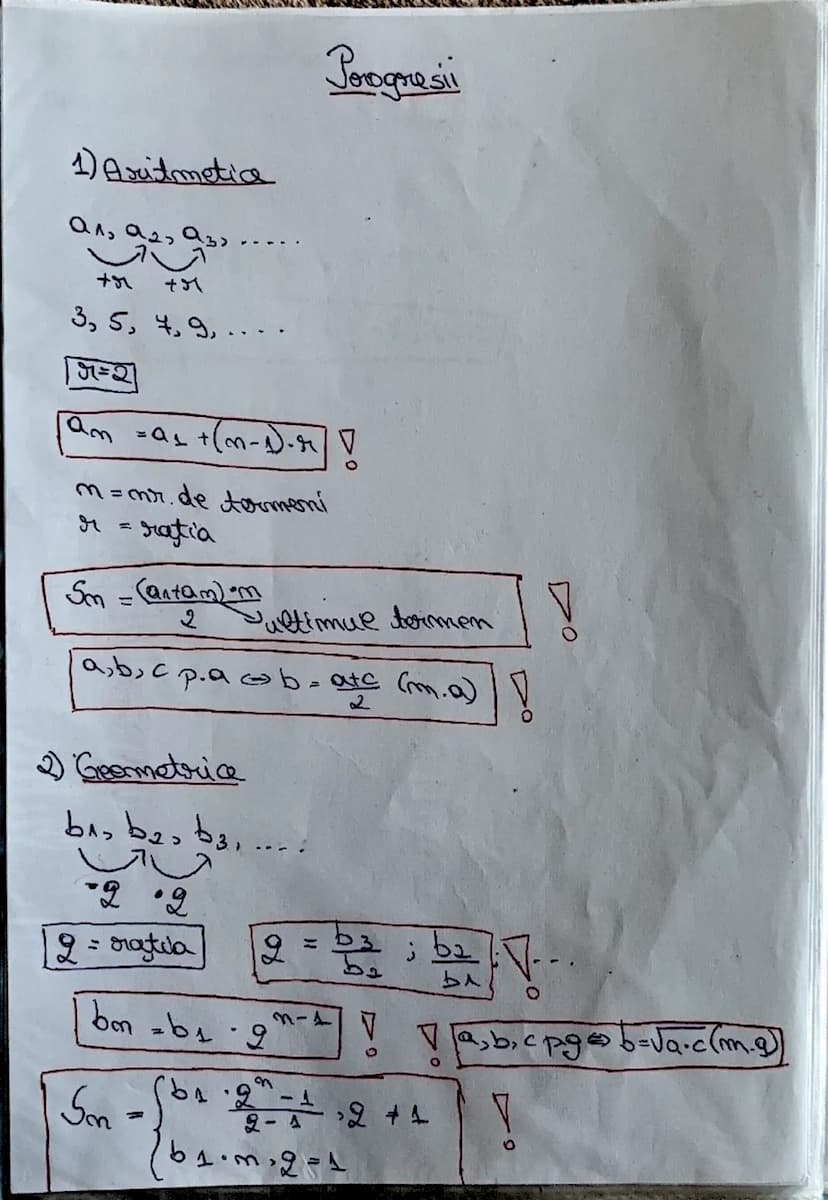 Progresii
1) Aritmetice
a1, a2, a3, .....
+r +r
3, 5, 7, 9, ....
r=2
an = a1 + (n-1)·r !
n = nr. de termeni
r = rația
Sn = (a1+an)·n / 2 → ultimul termen !
a, b, c p.a ⇔ b = a+c / 2 (m.a) !
2) Geometrice
b1, b2, b3, ....
·q ·q
q = rația q = b3/b2 ; b2/b1 ; ... !
bn = b1 · q^n-1 ! ! a, b, c pg ⇔ b=√a·c (m.g)
Sn = { b1 · q^n - 1 / q - 1 , q ≠ 1 !
b1·n, q = 1